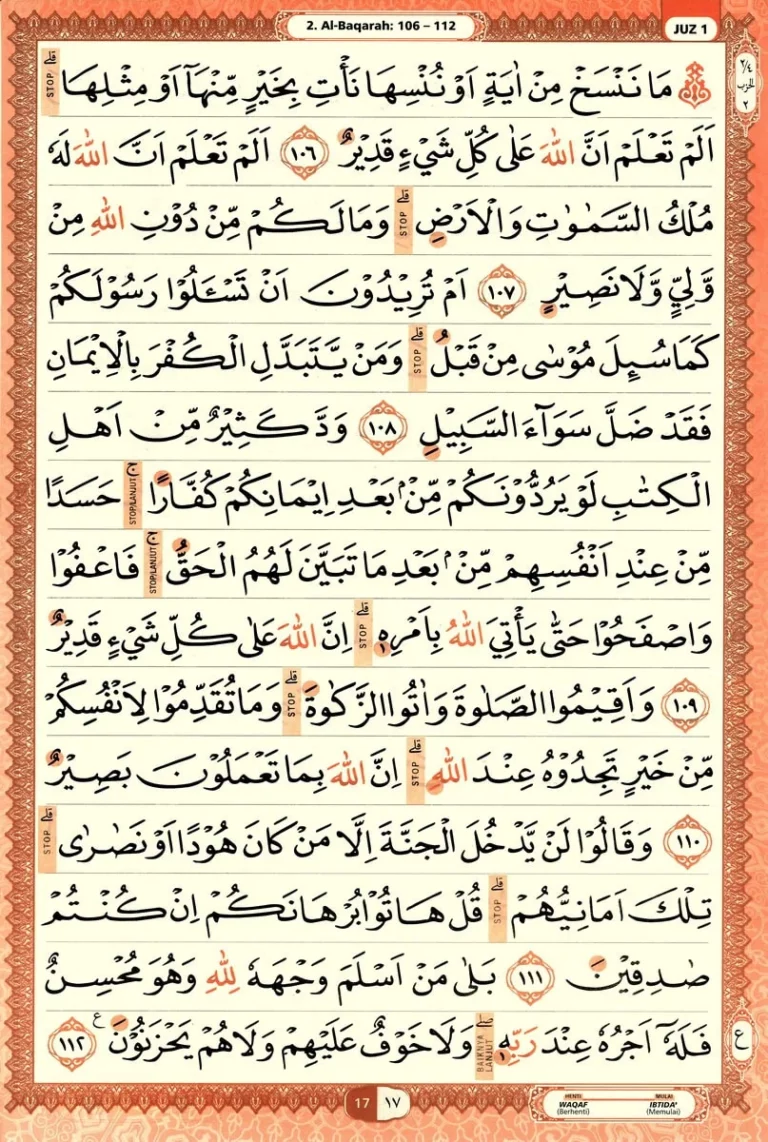 2. Al-Baqarah: 106 – 112
JUZ 1
٢/٤ الحزب ٢
مَا نَنْسَخْ مِنْ اٰيَةٍ اَوْ نُنْسِهَا نَأْتِ بِخَيْرٍ مِّنْهَآ اَوْ مِثْلِهَا ۗ STOP
اَلَمْ تَعْلَمْ اَنَّ اللّٰهَ عَلٰى كُلِّ شَيْءٍ قَدِيْرٌ ١٠٦ اَلَمْ تَعْلَمْ اَنَّ اللّٰهَ لَهٗ
مُلْكُ السَّمٰوٰتِ وَالْاَرْضِ ۗ STOP وَمَا لَكُمْ مِّنْ دُوْنِ اللّٰهِ مِنْ
وَّلِيٍّ وَّلَا نَصِيْرٍ ١٠٧ اَمْ تُرِيْدُوْنَ اَنْ تَسْـَٔلُوْا رَسُوْلَكُمْ
كَمَا سُىِٕلَ مُوْسٰى مِنْ قَبْلُ ۗ STOP وَمَنْ يَّتَبَدَّلِ الْكُفْرَ بِالْاِيْمَانِ
فَقَدْ ضَلَّ سَوَآءَ السَّبِيْلِ ١٠٨ وَدَّ كَثِيْرٌ مِّنْ اَهْلِ
الْكِتٰبِ لَوْ يَرُدُّوْنَكُمْ مِّنْۢ بَعْدِ اِيْمَانِكُمْ كُفَّارًا ۚ STOP/LANJUT حَسَدًا
مِّنْ عِنْدِ اَنْفُسِهِمْ مِّنْۢ بَعْدِ مَا تَبَيَّنَ لَهُمُ الْحَقُّ ۚ STOP/LANJUT فَاعْفُوْا
وَاصْفَحُوْا حَتّٰى يَأْتِيَ اللّٰهُ بِاَمْرِهٖ ۗ STOP اِنَّ اللّٰهَ عَلٰى كُلِّ شَيْءٍ قَدِيْرٌ
١٠٩ وَاَقِيْمُوا الصَّلٰوةَ وَاٰتُوا الزَّكٰوةَ ۗ STOP وَمَا تُقَدِّمُوْا لِاَنْفُسِكُمْ
مِّنْ خَيْرٍ تَجِدُوْهُ عِنْدَ اللّٰهِ ۗ STOP اِنَّ اللّٰهَ بِمَا تَعْمَلُوْنَ بَصِيْرٌ
١١٠ وَقَالُوْا لَنْ يَّدْخُلَ الْجَنَّةَ اِلَّا مَنْ كَانَ هُوْدًا اَوْ نَصٰرٰى ۗ STOP
تِلْكَ اَمَانِيُّهُمْ ۗ STOP قُلْ هَاتُوْا بُرْهَانَكُمْ اِنْ كُنْتُمْ
صٰدِقِيْنَ ١١١ بَلٰى مَنْ اَسْلَمَ وَجْهَهٗ لِلّٰهِ وَهُوَ مُحْسِنٌ
فَلَهٗٓ اَجْرُهٗ عِنْدَ رَبِّهٖ ۖ BAIKNYA LANJUT وَلَا خَوْفٌ عَلَيْهِمْ وَلَا هُمْ يَحْزَنُوْنَ ࣖ ١١٢
ع
17 ١٧
HENTI WAQAF (Berhenti)
MULAI IBTIDA' (Memulai)